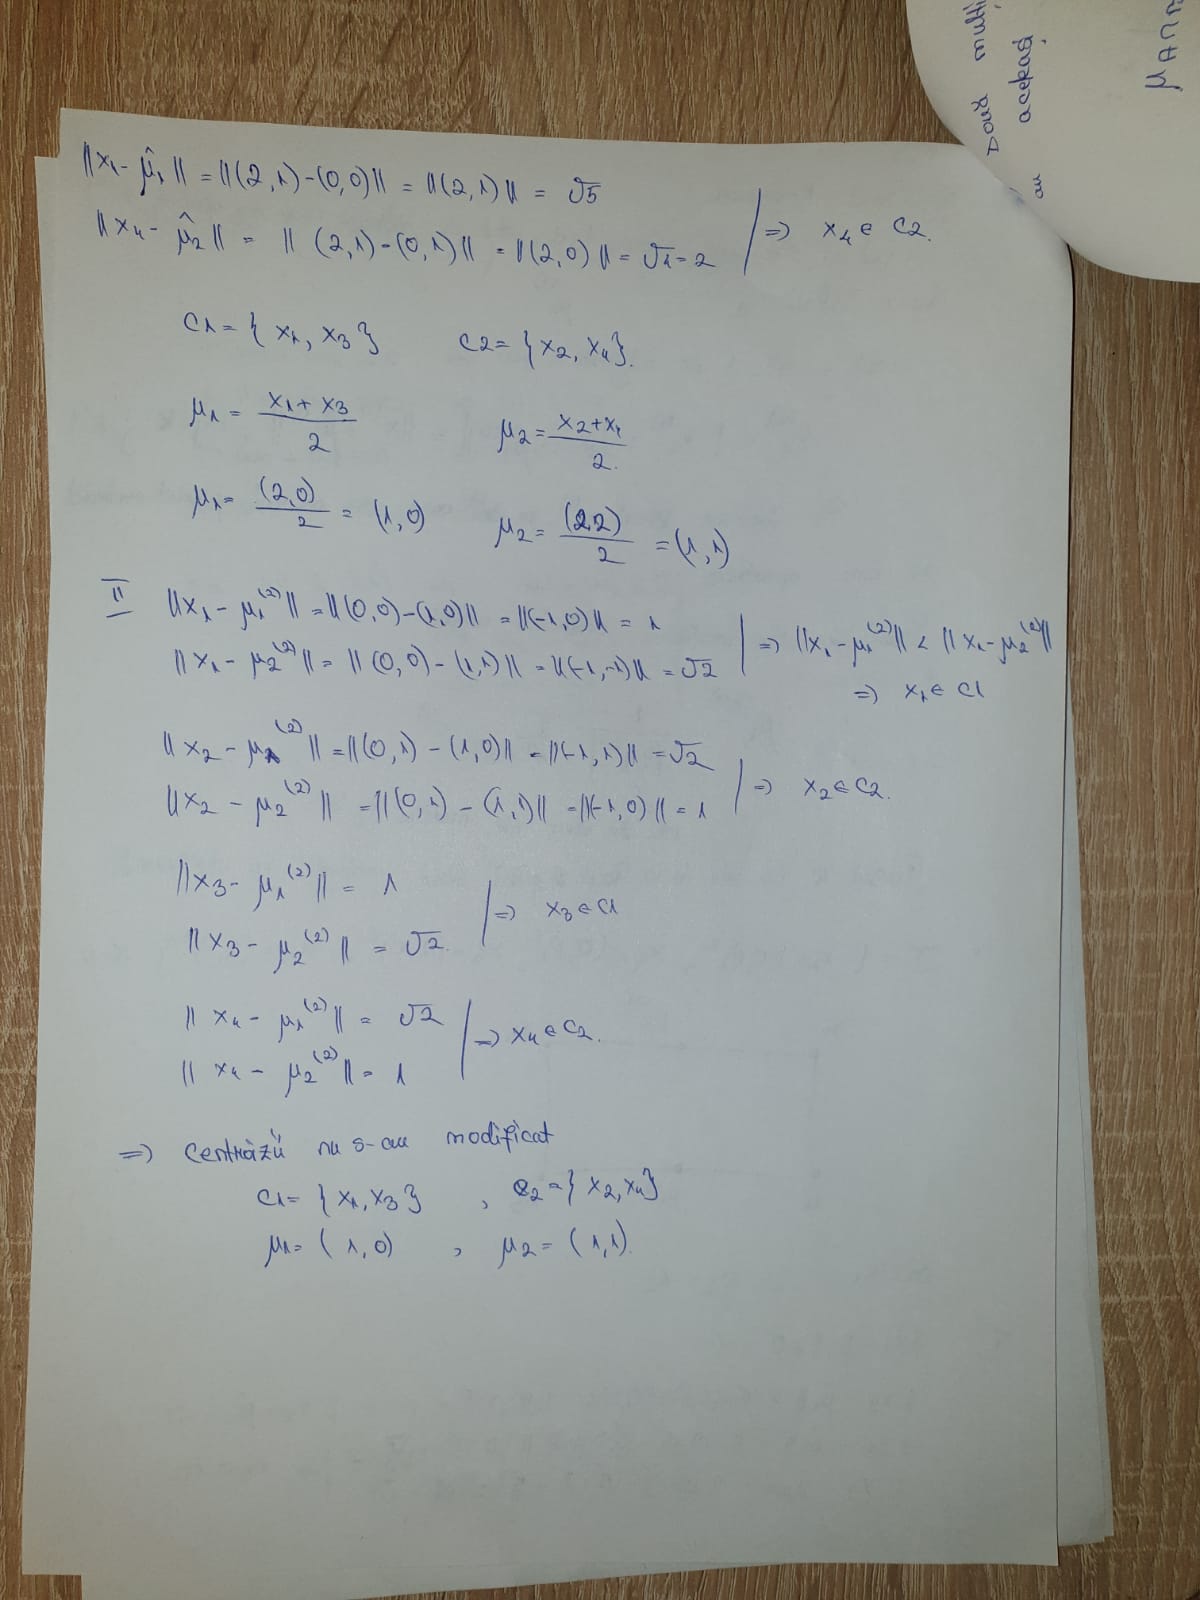 ||x₄ - μ̂₁|| = ||(2,1)-(0,0)|| = ||(2,1)|| = √5
||x₄ - μ̂₂|| = || (2,1)-(0,1)|| = ||(2,0)|| = √4=2 | => x₄ ∈ C2.
C1 = { x₁, x₃ } C2 = { x₂, x₄ }.
μ₁ = (x₁ + x₃)/2 μ₂ = (x₂+x₄)/2.
μ₁ = (2,0)/2 = (1,0) μ₂ = (2,2)/2 = (1,1)
II ||x₁ - μ₁⁽²⁾|| = ||(0,0)-(1,0)|| = ||(-1,0)|| = 1
||x₁ - μ₂⁽²⁾|| = || (0,0) - (1,1)|| = ||(-1,-1)|| = √2 | => ||x₁-μ₁⁽²⁾|| < ||x₁-μ₂⁽²⁾||
=> x₁ ∈ C1
||x₂ - μ₁⁽²⁾|| = ||(0,1) - (1,0)|| = ||(-1,1)|| = √2
||x₂ - μ₂⁽²⁾|| = ||(0,1) - (1,1)|| = ||(-1,0)|| = 1 | => x₂ ∈ C2.
||x₃ - μ₁⁽²⁾|| = 1
||x₃ - μ₂⁽²⁾|| = √2 | => x₃ ∈ C1
|| x₄ - μ₁⁽²⁾|| = √2
|| x₄ - μ₂⁽²⁾|| = 1 | => x₄ ∈ C2.
=> Centrăzii nu s-au modificat
C1 = { x₁, x₃ } , C2 = { x₂, x₄ }
μ₁ = ( 1,0) , μ₂ = ( 1,1).
Două mulți
au aceeași